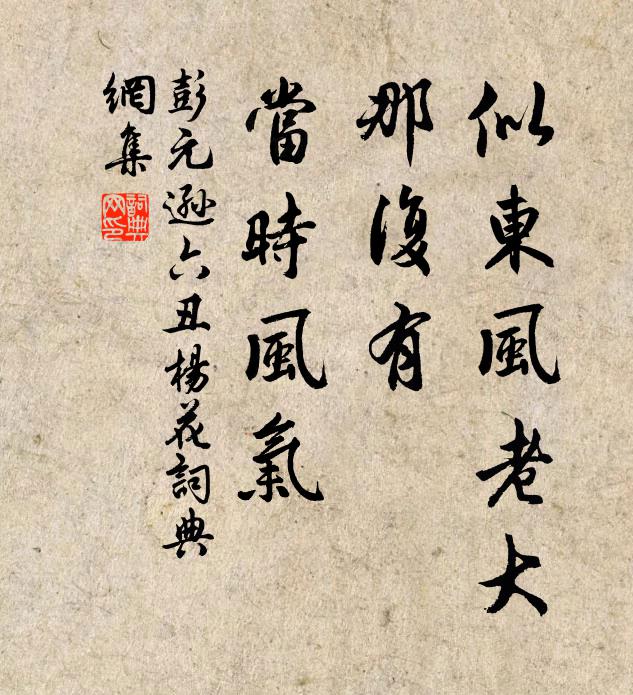 似東風老大
那復有
當時風氣
彭元遜六丑楊花詞典
網集
詞典
网印